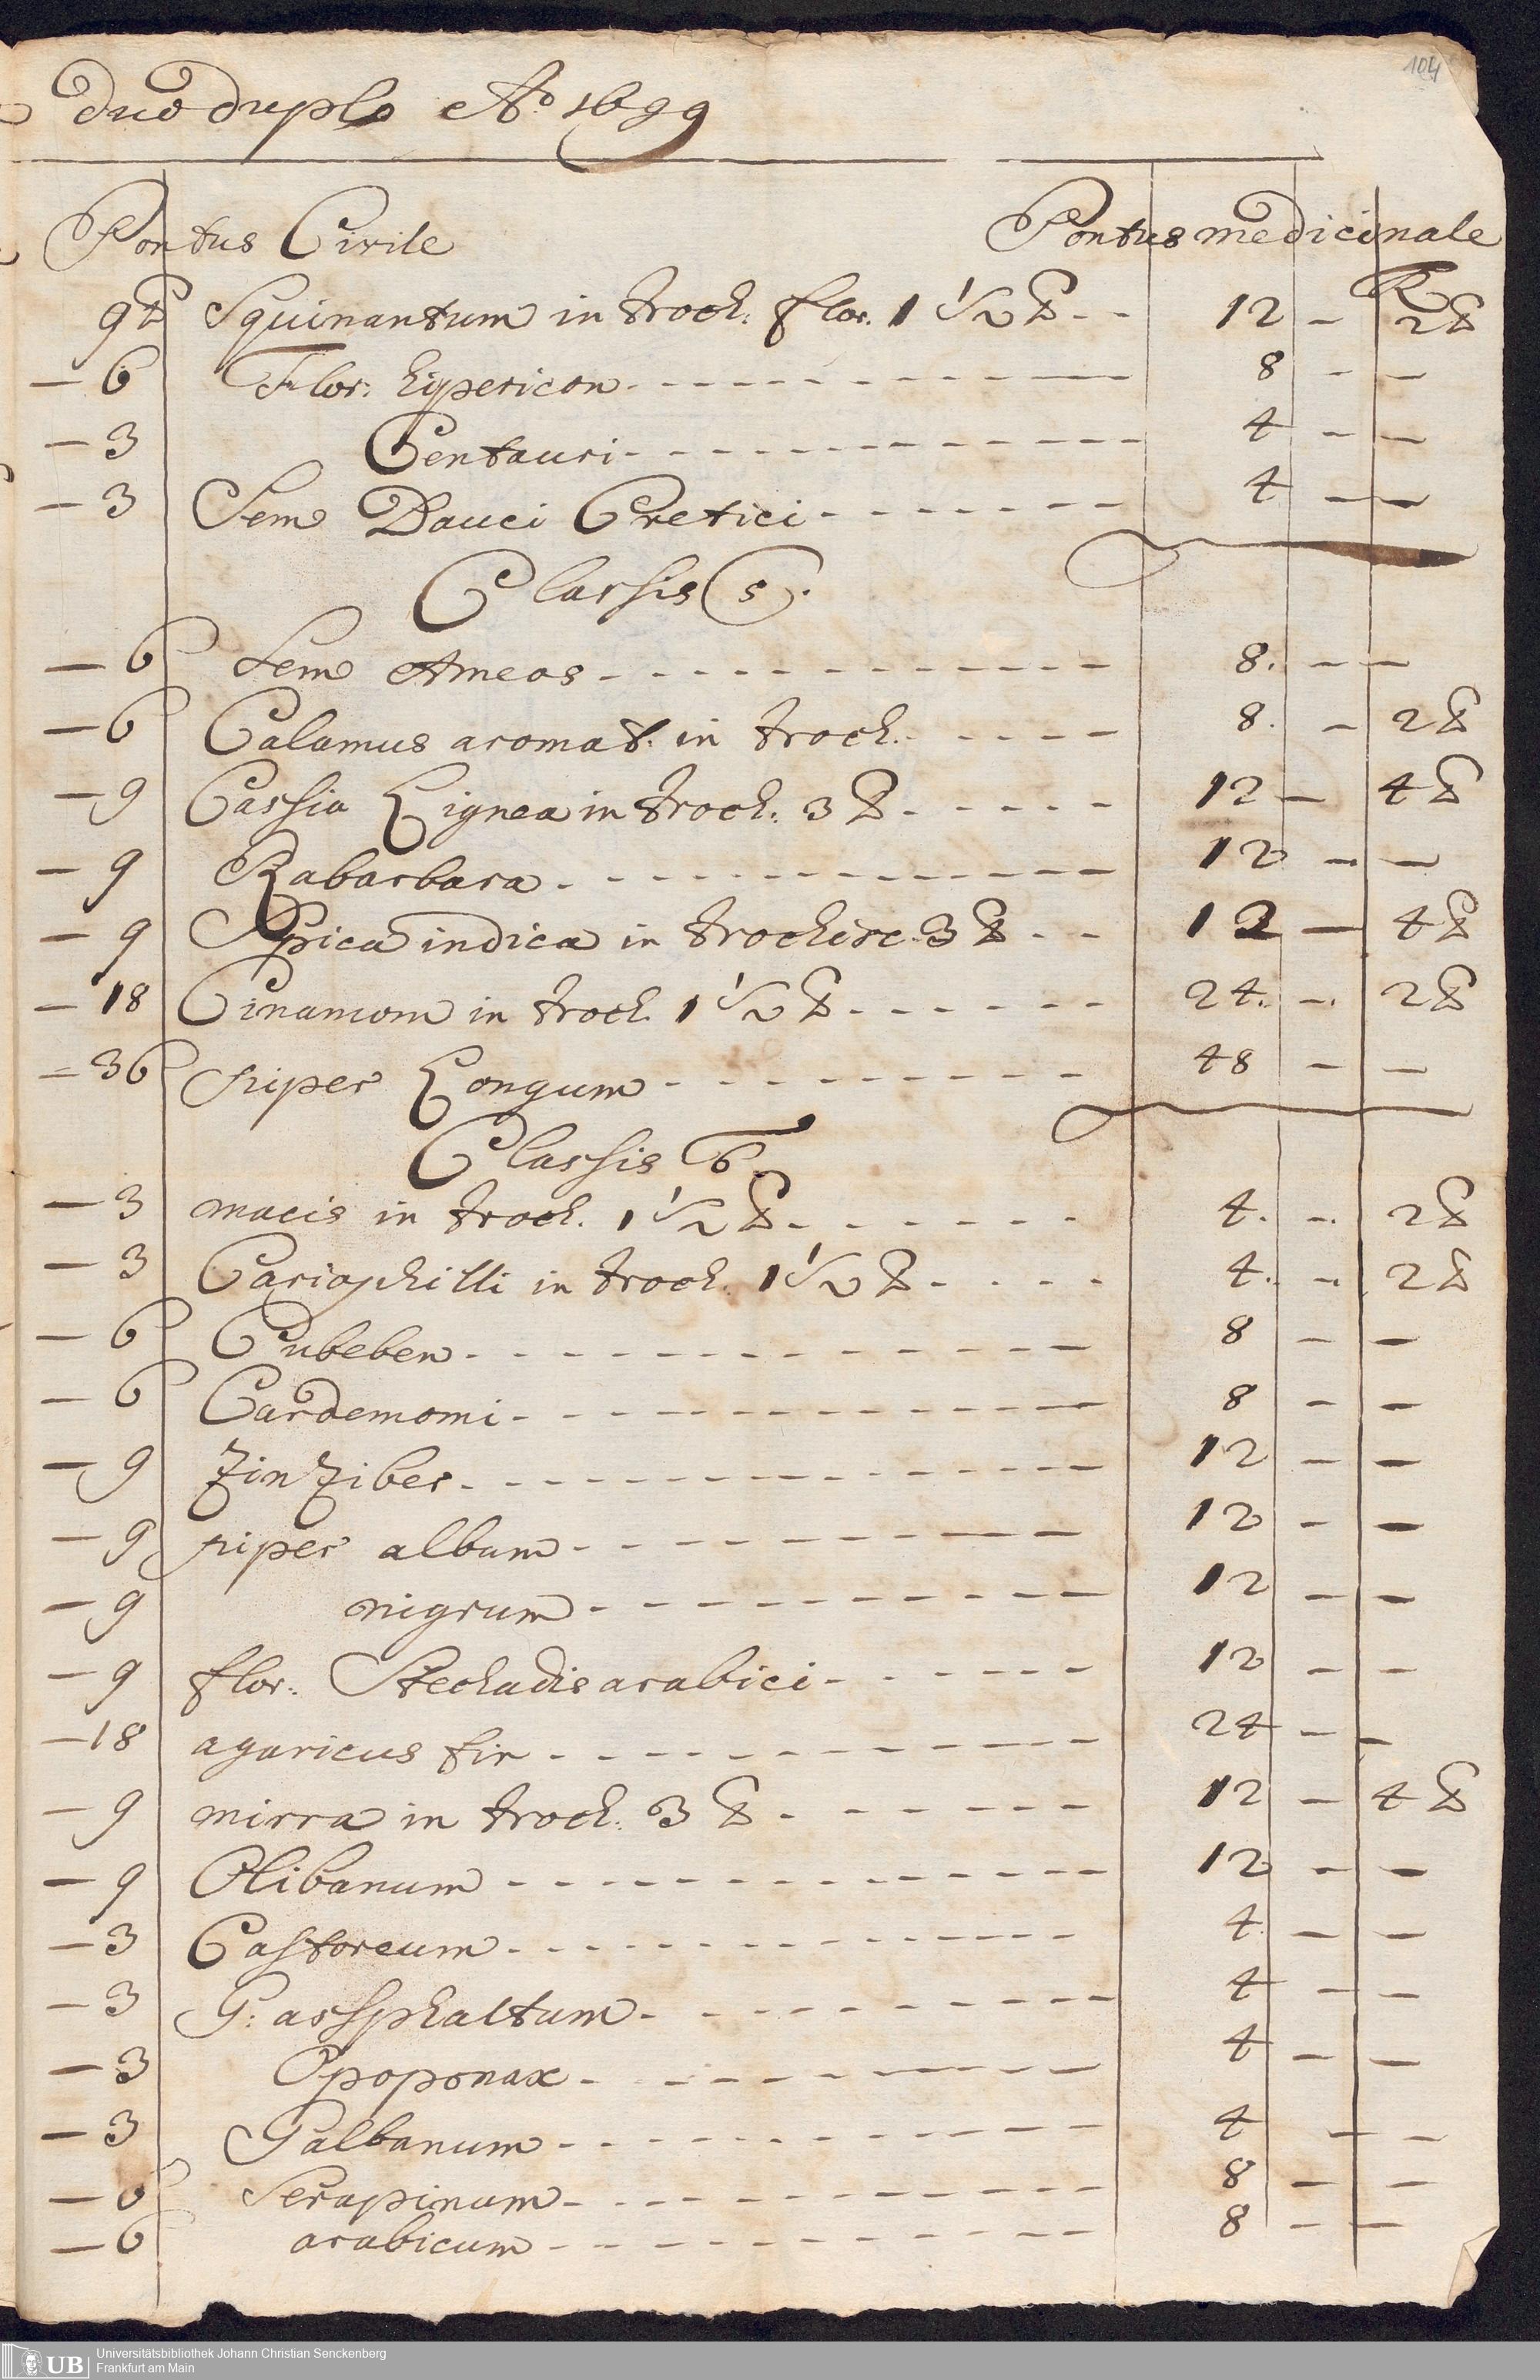 104
duo duplo Ao 1699
Pontus Civile Pontus medicinale
9 ℔ Squinantum in troch: flor. 1 1/2 ℔ - - 12 - 2 ℔
- 6 Flor: hipericon - - - 8 - -
- 3 Centauri - - - 4 - -
- 3 Sem Dauci Cretici - - - 4 - -
Classis 5.
- 6 Sem Ameos - - - 8. - -
- 6 Calamus aromat. in troch. - - - 8. - 2 ℔
- 9 Cassia Lignea in troch: 3 ℔ - - - 12 - 4 ℔
- 9 Rabarbara - - - 12 - -
- 9 Spica indica in trochisc. 3 ℔ - - 12 - 4 ℔
- 18 Cinamom in troch. 1 1/2 ℔ - - - 24. - 2 ℔
- 36 piper Longum - - - 48 - -
Classis 6.
- 3 macis in troch. 1 1/2 ℔ - - - 4. - 2 ℔
- 3 Cariophilli in troch. 1 1/2 ℔ - - - 4. - 2 ℔
- 6 Cubeben - - - 8 - -
- 6 Cardemomi - - - 8 - -
- 9 Zinziber - - - 12 - -
- 9 piper album - - - 12 - -
- 9 nigrum - - - 12 - -
- 9 flor. Stechadis arabici - - - 12 - -
- 18 agaricus fin - - - 24 - -
- 9 mirra in troch: 3 ℔ - - - 12 - 4 ℔
- 9 Olibanum - - - 12 - -
- 3 Castoreum - - - 4 - -
- 3 G: assphaltum - - - 4 - -
- 3 Opoponax - - - 4 - -
- 3 Galbanum - - - 4 - -
- 6 Serapinum - - - 8 - -
- 6 arabicum - - - 8 - -
UB Universitätsbibliothek Johann Christian Senckenberg
Frankfurt am Main